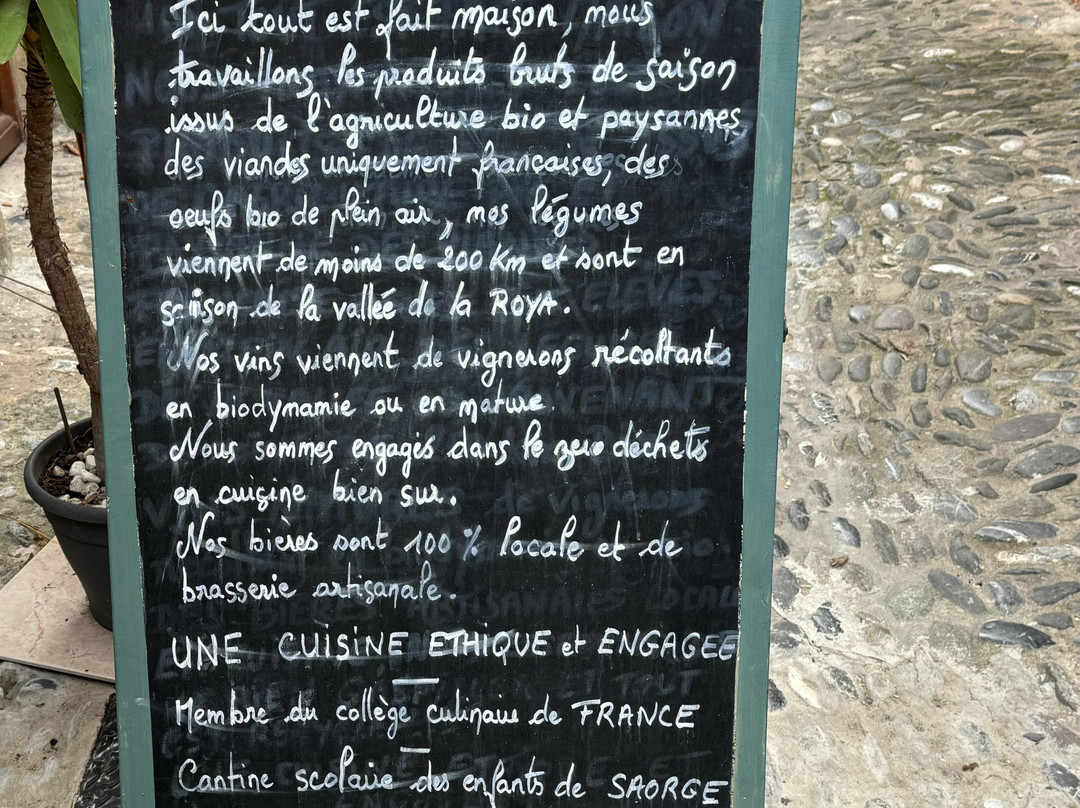 Ici tout est fait maison, nous
travaillons les produits bruts de saison
issus de l'agriculture bio et paysannes,
des viandes uniquement françaises, des
oeufs bio de plein air, nos légumes
viennent de moins de 200 Km et sont en
saison de la vallée de la ROYA.
Nos vins viennent de vignerons récoltants
en biodynamie ou en nature.
Nous sommes engagés dans le zero déchets
en cuisine bien sur.
Nos bières sont 100 % locale et de
brasserie artisanale.
UNE CUISINE ETHIQUE et ENGAGEE
—
Membre du collège culinaire de FRANCE
—
Cantine scolaire des enfants de SAORGE